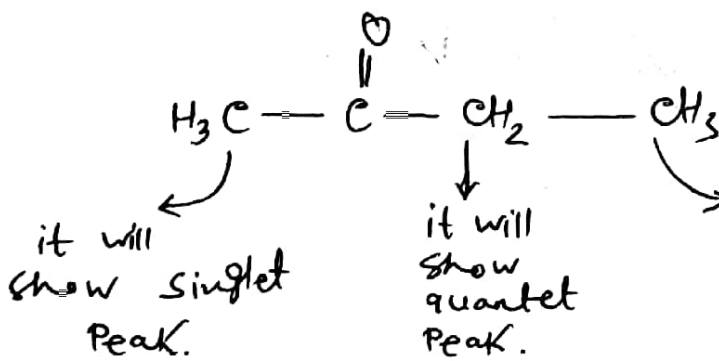 O
H₃C — C — CH₂ — CH₃
it will
show singlet
Peak.
it will
show
quantet
Peak.